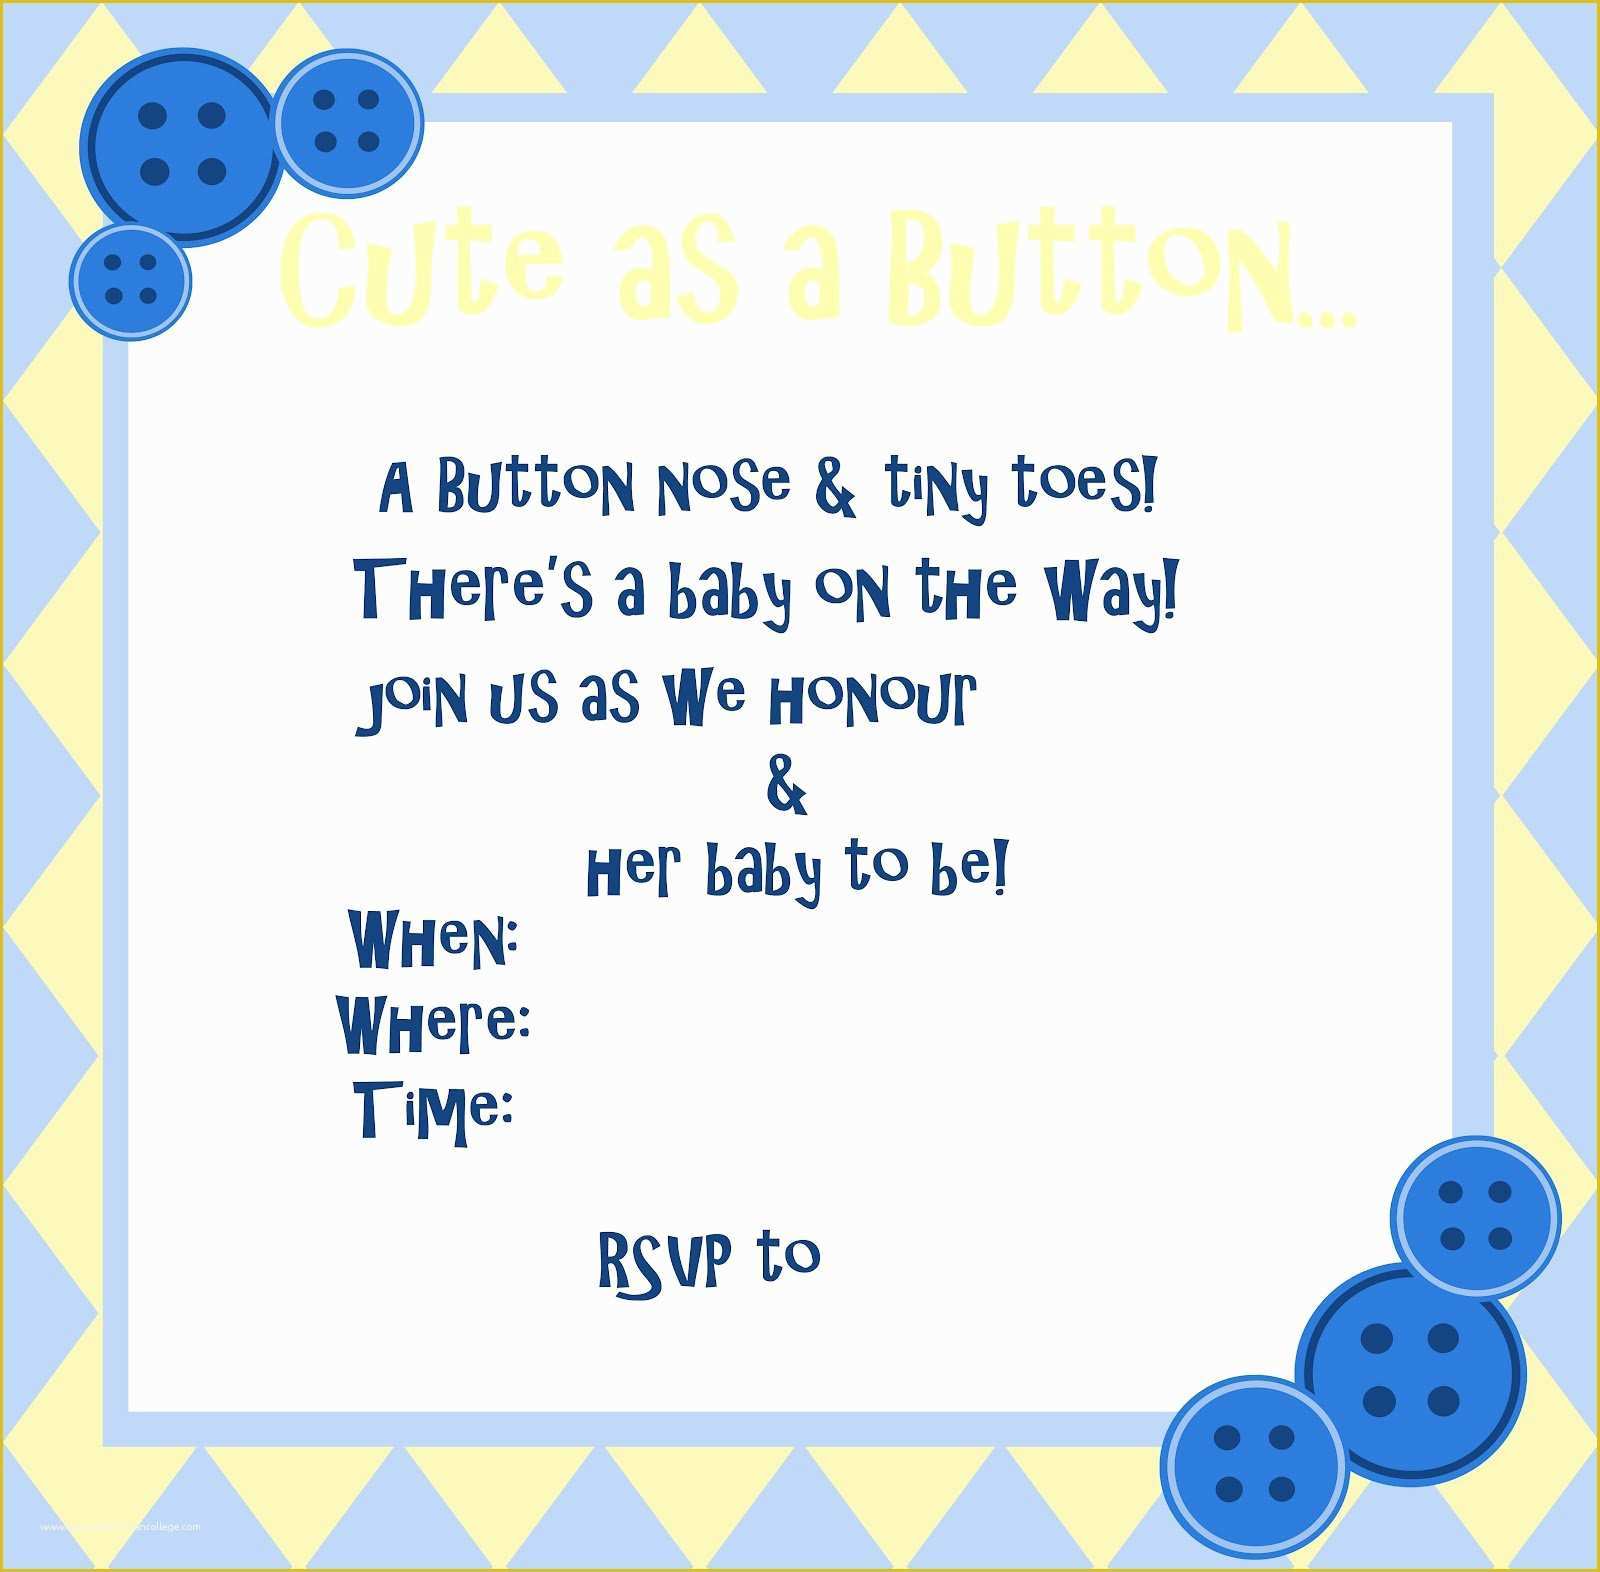 Cute as a Button...
A Button Nose & tiny toes!
There's a baby on the Way!
Join us as We Honour
&
Her baby to be!
When:
Where:
Time:
RSVP to